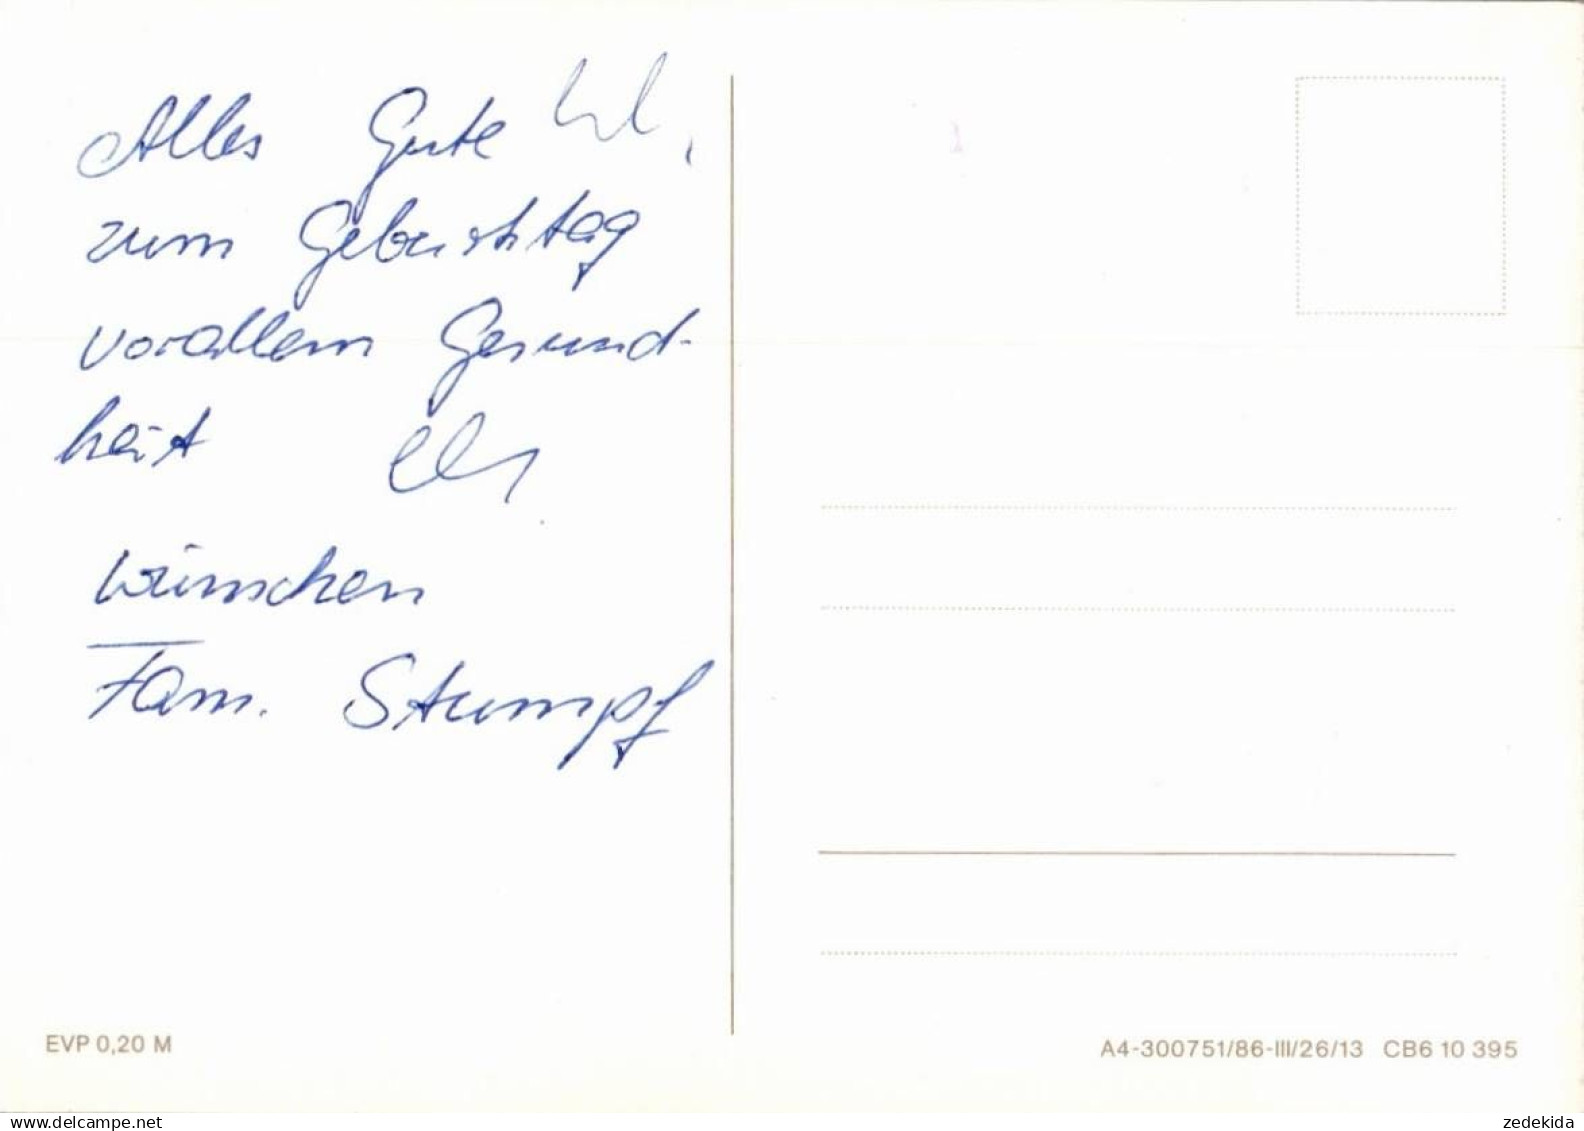 Alles Gute
zum Geburtstag
vorallem Gesund-
heit
wünschen
Fam. Stumpf
EVP 0,20 M
A4-300751/86-III/26/13 CB6 10 395
zedekida